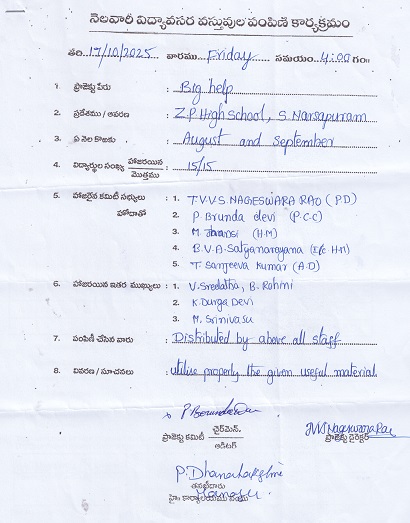 నెలవారీ విద్యావసర వస్తువుల పంపిణి కార్యక్రమం
తేది. 17/10/2025 వారము... Friday..... సమయం.. 4:00 గం॥
1. ప్రాజెక్టు పేరు : Big help
2. ప్రదేశము / ఆవరణ : Z.P. High school, S. Narsapuram
3. ఏ నెల కొఱకు : August and September
4. విద్యార్థుల సంఖ్య హాజరయిన / మొత్తము : 15/15
5. హాజరైన కమిటీ సభ్యులు : 1. T.V.V.S NAGESWARA RAO (P.D)
హోదాతో 2. P. Brunda devi (P.C.C)
3. M. Jhansi (H.M)
4. B.V.A. Satyanarayana (I/c H.M)
5. T. Sanjeeva Kumar (A.D)
6. హాజరయిన ఇతర ముఖ్యులు : 1. V. Sredatha, B. Rohmi
2. K. Durga Devi
3. M. Srinivasu
7. పంపిణీ చేసిన వారు : Distributed by above all staff
8. వివరణ / సూచనలు : utilise properly the given useful material.
P Berunda
ప్రాజెక్టు కమిటీ చైర్‌మెన్. / ఆడిటర్
TVVS Nageswara Rao
ప్రాజెక్టు డైరెక్టర్
P. Dhanalakshmi